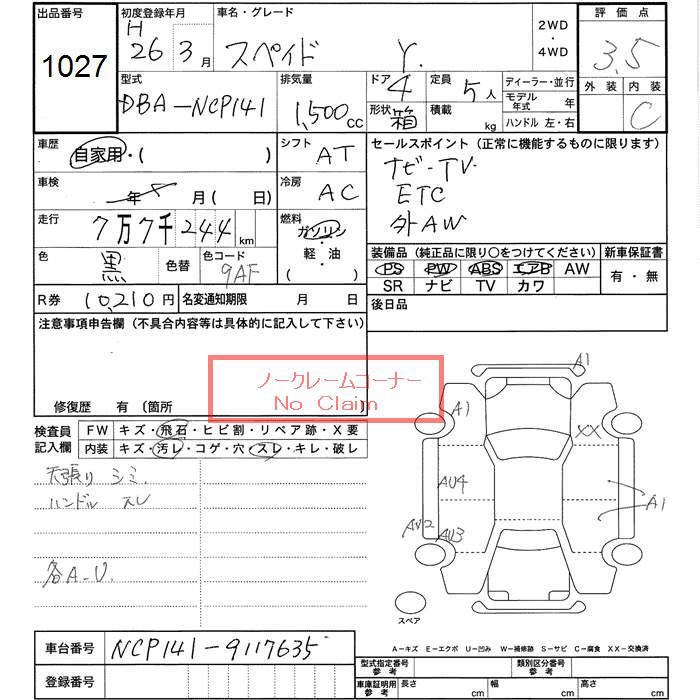 出品番号
1027
初度登録年月
H
26 3月
車名・グレード
スペイド Y.
2WD
・
4WD
評価点
3.5
外装 内装
C
型式
DBA-NCP141
排気量
1,500cc
ドア
4
形状
箱
定員
5人
積載
kg
ディーラー・並行
モデル年式 年
ハンドル 左・右
車歴
自家用・( )
シフト
AT
セールスポイント (正常に機能するものに限ります)
ナビ-TV
ETC
外AW
車検
年 月( 日)
冷房
AC
走行
7万7千244km
燃料
ガソリン
・
軽・油
( )
色
黒
色替
色コード
9AF
装備品 (純正品に限り〇をつけてください)
PS PW ABS エアB AW
SR ナビ TV カワ
新車保証書
有・無
R券 10,210円
名変通知期限 月 日
後日品
注意事項申告欄 (不具合内容等は具体的に記入して下さい)
ノークレームコーナー
No Claim
修復歴 有 〔箇所
検査員
記入欄
FW キズ・飛石・ヒビ割・リペア跡・X要
内装 キズ・汚レ・コゲ・穴・スレ・キレ・破レ
天張り シミ.
ハンドル スレ
各A-U.
A1
A1
XX
AU4
A1
AU2
AU3
スペア
A-キズ E-エクボ U-凹み W-補修跡 S-サビ C-腐食 XX-交換済
車台番号
NCP141-9117635
登録番号
型式指定番号
参考
類別区分番号
参考
車庫証明用
参考
長さ cm
幅 cm
高さ cm